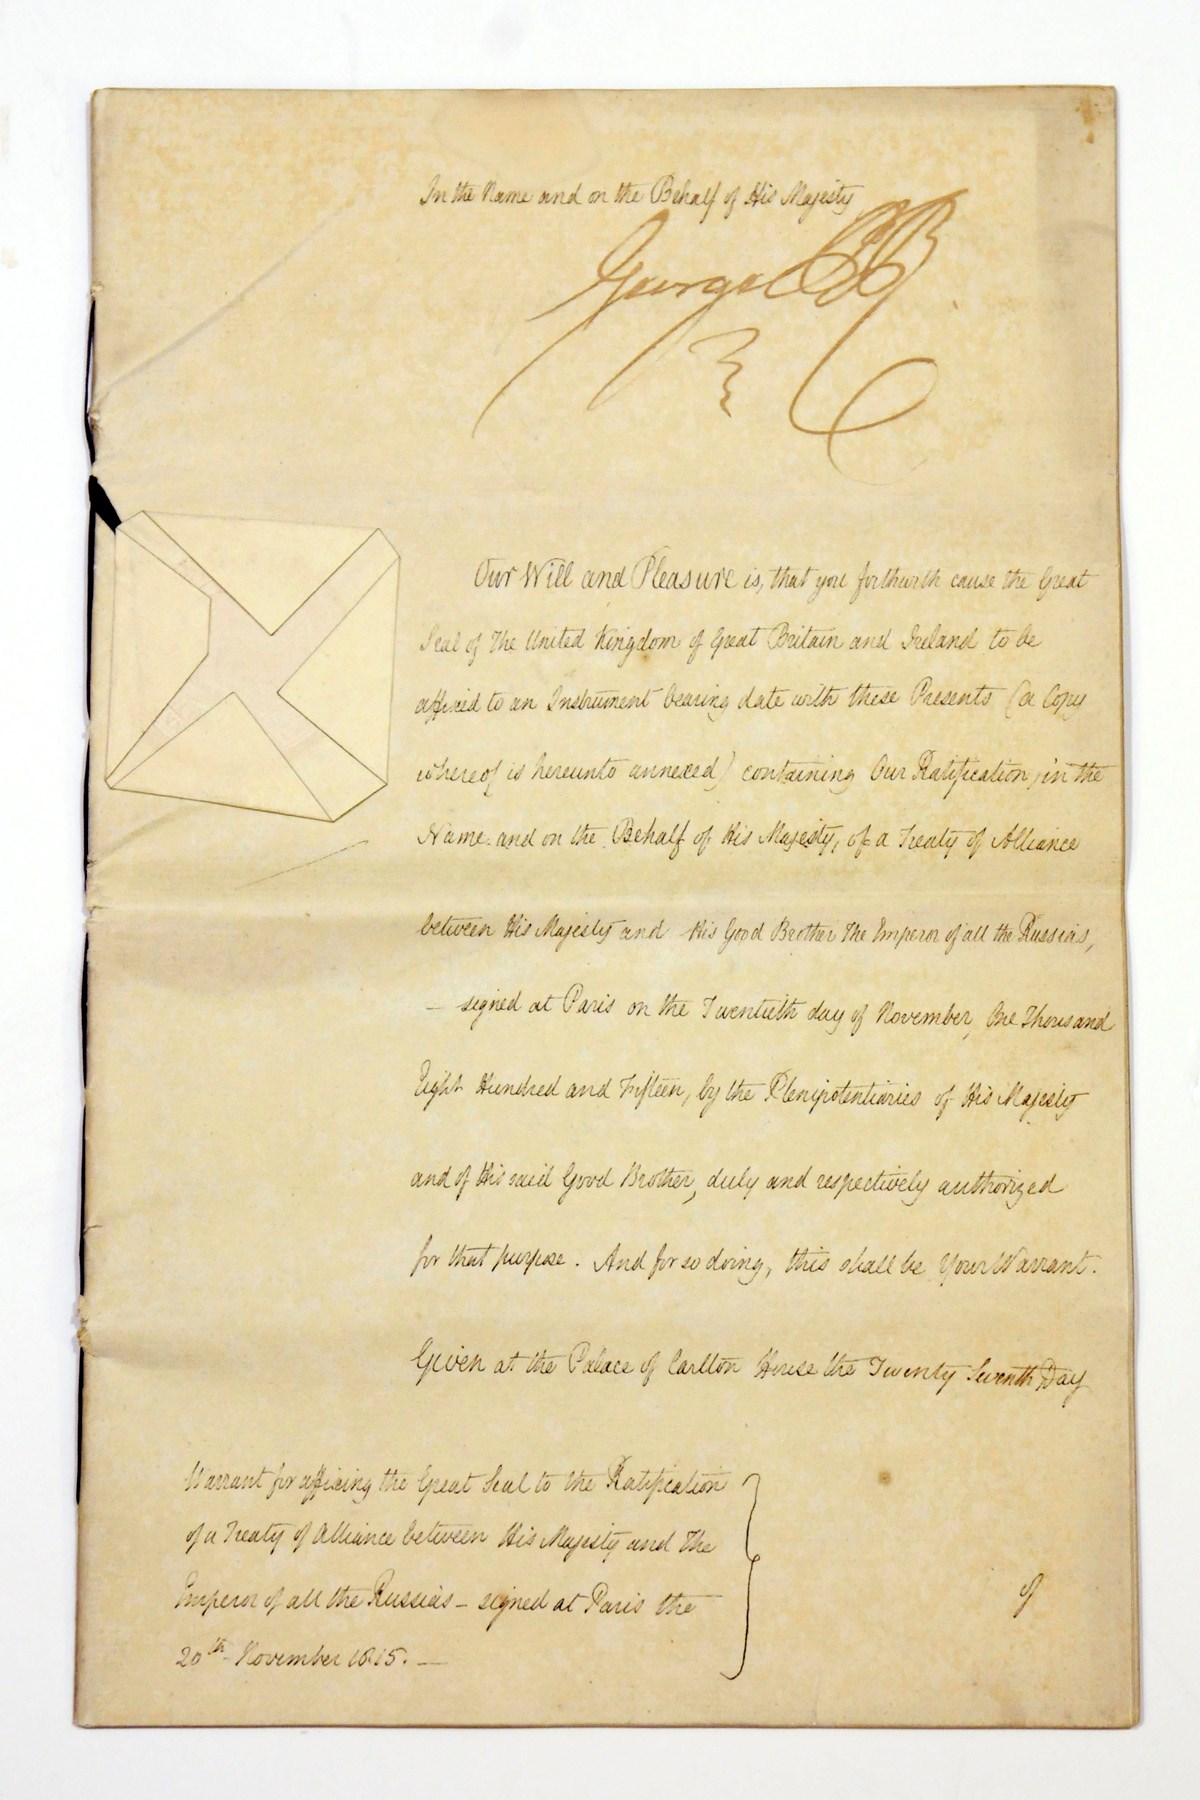 In the Name and on the Behalf of His Majesty
George P R
Our Will and Pleasure is, that you forthwith cause the Great
Seal of The United Kingdom of Great Britain and Ireland to be
affixed to an Instrument bearing date with these Presents (a Copy
whereof is hereunto annexed) containing Our Ratification, in the
Name and on the Behalf of His Majesty, of a Treaty of Alliance
between His Majesty and His Good Brother The Emperor of all the Russias,
— signed at Paris on the Twentieth day of November, One Thousand
Eight Hundred and Fifteen, by the Plenipotentiaries of His Majesty
and of His said Good Brother, duly and respectively authorized
for that purpose. And for so doing, this shall be Your Warrant.
Given at the Palace of Carlton House the Twenty Seventh Day
Warrant for affixing the Great Seal to the Ratification
of a Treaty of Alliance between His Majesty and The
Emperor of all the Russias — signed at Paris the
20th November 1815. —
of